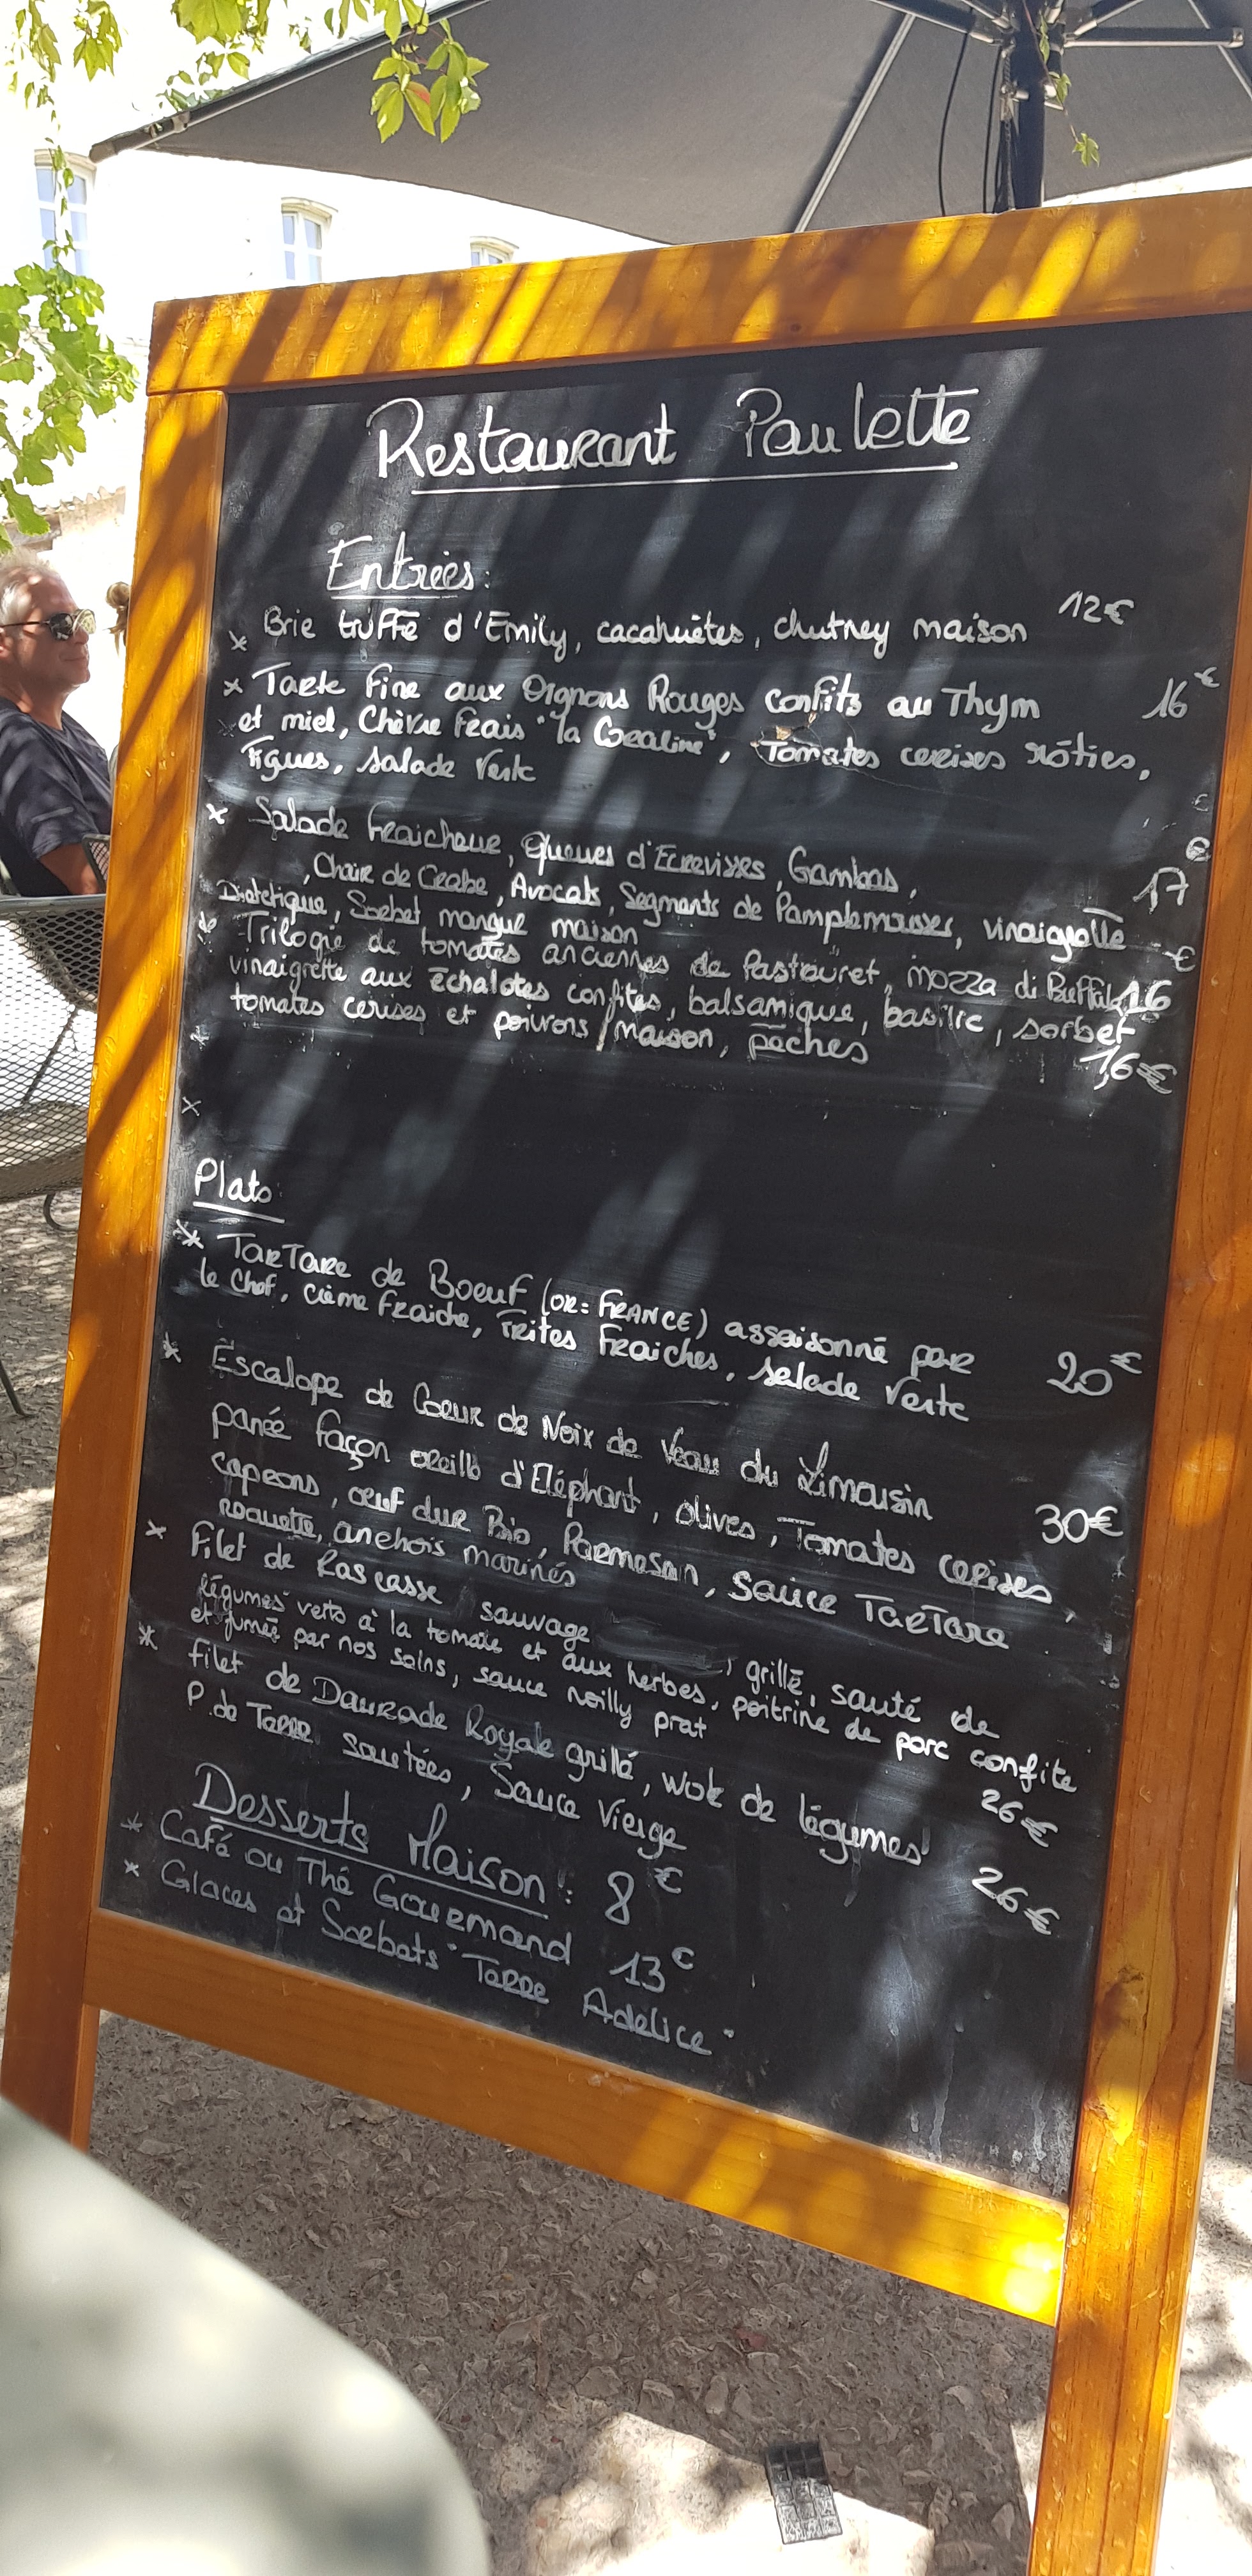 Restaurant Paulette
Entrées:
* Brie truffé d'Emily, cacahuètes, chutney maison 12€
* Tarte Fine aux Oignons Rouges confits au Thym 16€
et miel, Chèvre Frais "la Coraline", Tomates cerises rôties,
Figues, Salade Verte
* Salade Fraicheur, Queues d'Ecrevisses, Gambas, 17€
, Chair de Crabe, Avocats, Segments de Pamplemousses, vinaigrette
Diététique, Sorbet mangue maison
* Trilogie de tomates anciennes de Pastouret, mozza di Buffala 16€
vinaigrette aux échalotes confites, balsamique, basilic, sorbet
tomates cerises et poivrons maison, pêches 16€
Plats:
* TarTare de Boeuf (OR: FRANCE) assaisonné par 20€
le Chef, crème Fraiche, Frites Fraiches, Salade Verte
* Escalope de Coeur de Noix de Veau du Limousin 30€
panée façon oreille d'Eléphant, olives, Tomates cerises,
caprons, œuf dur Bio, Parmesan, Sauce TarTare
roquette, anchois marinés
* Filet de Rascasse sauvage grillé, sauté de
légumes verts à la tomate et aux herbes, poitrine de porc confite
et fumée par nos soins, sauce noilly prat 26€
* Filet de Daurade Royale grillé, wok de légumes 26€
P. de Terre sautées, Sauce Vierge
Desserts Maison: 8€
* Café ou Thé Gourmand 13€
* Glaces et Sorbets "Terre Adelice"